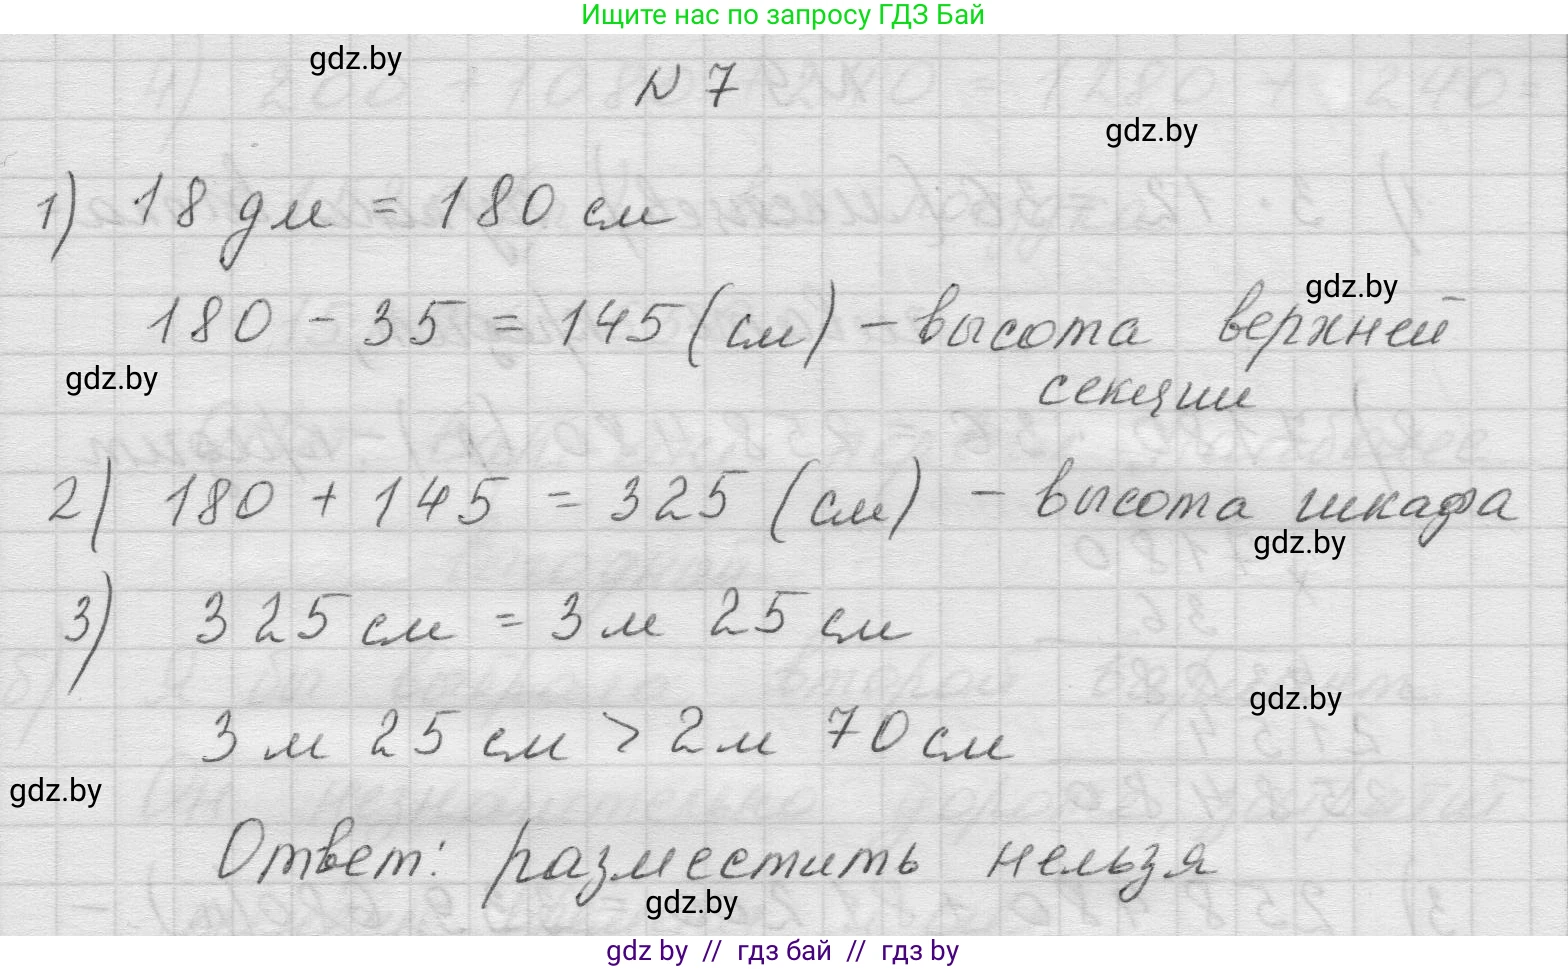 Ищите нас по запросу ГДЗ Бай
gdz.by
N 7
gdz.by
1) 18 дм = 180 см
gdz.by
180 - 35 = 145 (см) - высота верхней
секции
gdz.by
2) 180 + 145 = 325 (см) - высота шкафа
gdz.by
3) 325 см = 3 м 25 см
gdz.by
3 м 25 см > 2 м 70 см
gdz.by
Ответ: разместить нельзя
gdz.by
gdz by // гдз бай // гдз by